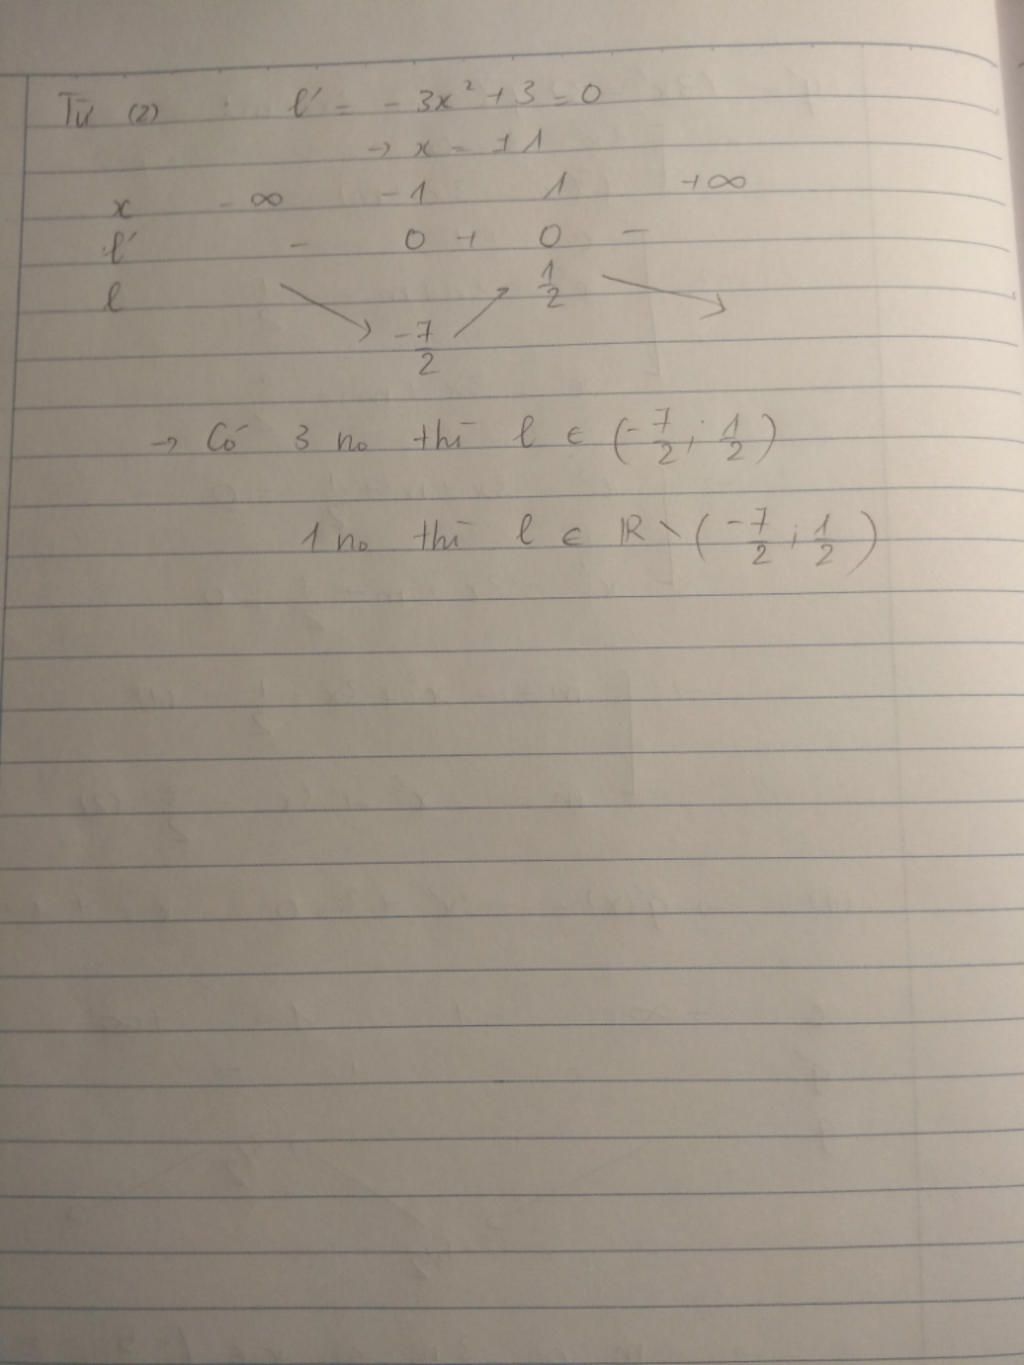 Từ (2) : l' = - 3x² + 3 = 0
→ x = ±1
x -∞ -1 1 +∞
l' - 0 + 0 -
l -7/2 1/2
→ Có 3 no thì l ∈ (-7/2; 1/2)
1 no thì l ∈ ℝ \ (-7/2; 1/2)